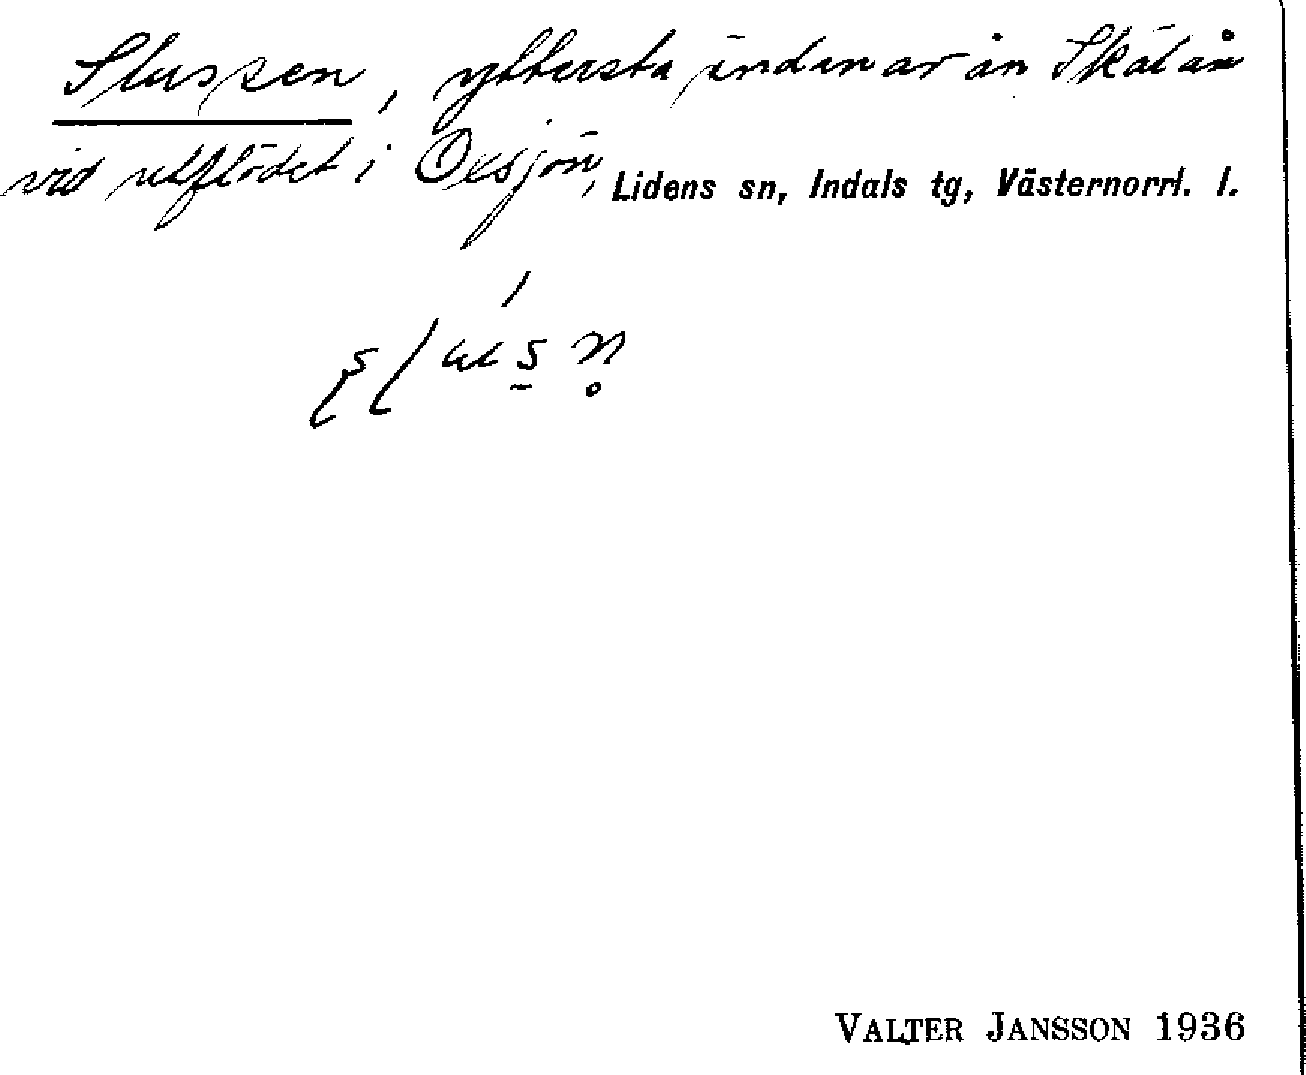 Slussen, yttersta ändan av ån Skälån
vid utflödet i Oxsjön, Lidens sn, Indals tg, Västernorrl. l.
VALTER JANSSON 1936